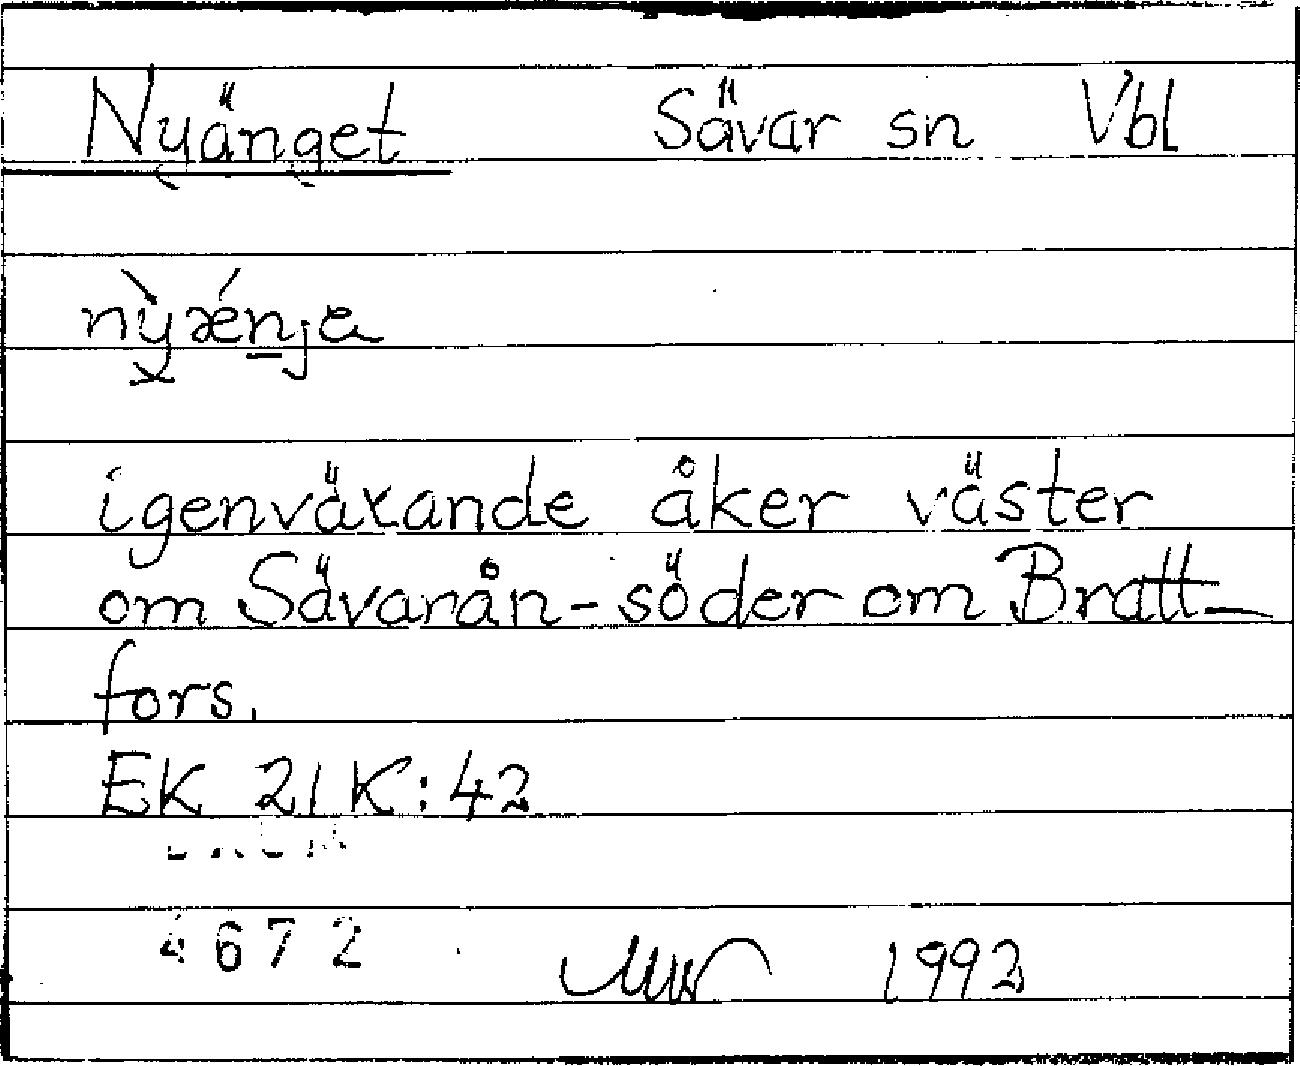 Nyänget Sävar sn Vbl
nỳǽnja
igenväxande åker väster
om Sävarån - söder om Bratt-
fors.
EK 21K:42
4672 1992